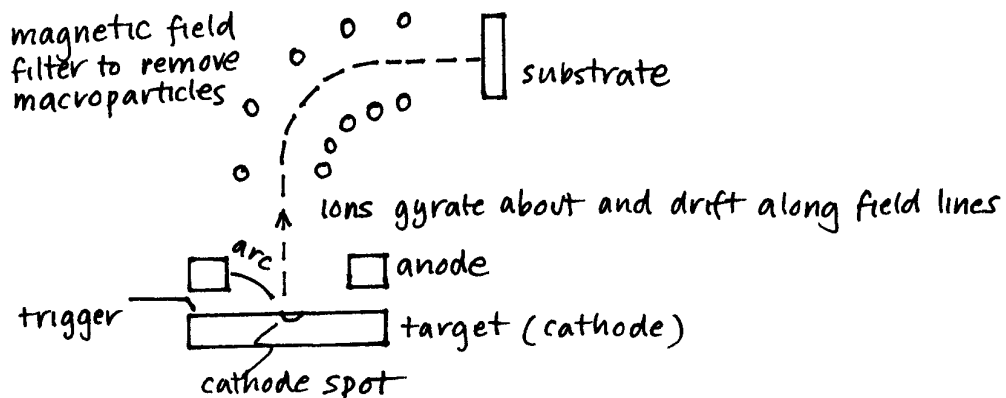 magnetic field
filter to remove
macroparticles
substrate
ions gyrate about and drift along field lines
arc
anode
trigger
target (cathode)
cathode spot